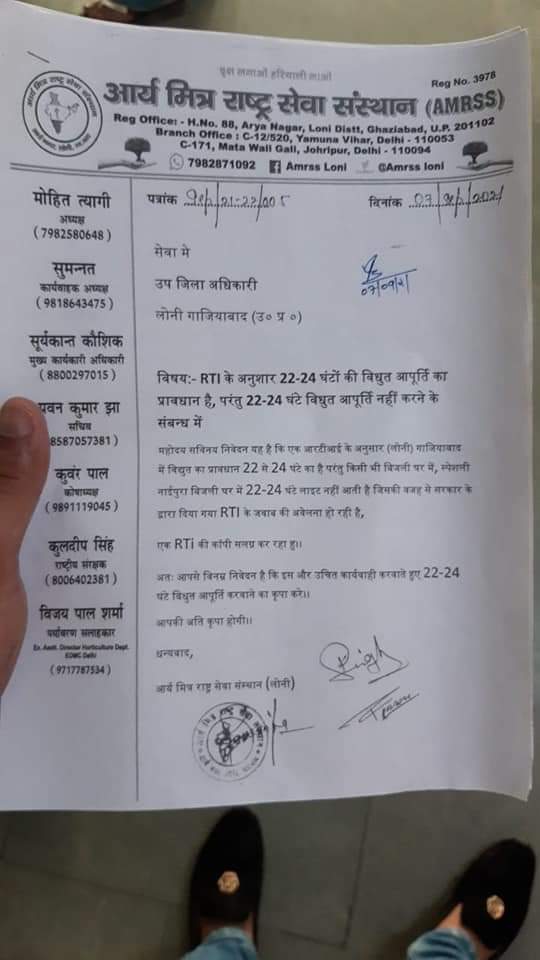 वृक्ष लगाओ हरियाली लाओ
Reg No. 3978
आर्य मित्र राष्ट्र सेवा संस्थान (AMRSS)
Reg Office:- H.No. 88, Arya Nagar, Loni Distt, Ghaziabad, U.P. 201102
Branch Office : C-12/520, Yamuna Vihar, Delhi - 110053
C-171, Mata Wali Gali, Johripur, Delhi - 110094
7982871092 Amrss Loni @Amrss loni
मोहित त्यागी
अध्यक्ष
( 7982580648 )
सुमन्नत
कार्यवाहक अध्यक्ष
( 9818643475 )
सूर्यकान्त कौशिक
मुख्य कार्यकारी अधिकारी
( 8800297015 )
पवन कुमार झा
सचिव
8587057381 )
कुवंर पाल
कोषाध्यक्ष
( 9891119045 )
कुलदीप सिंह
राष्ट्रीय संरक्षक
( 8006402381 )
विजय पाल शर्मा
पर्यावरण सलाहकार
Ex. Asstt. Director Horticulture Dept.
EDMC Delhi
( 9717787534 )
पत्रांक /21-22/005 दिनांक 07
सेवा मे
07/09/21
उप जिला अधिकारी
लोनी गाजियाबाद (उ० प्र ०)
विषय:- RTI के अनुशार 22-24 घंटों की विधुत आपूर्ति का
प्रावधान है, परंतु 22-24 घंटे विधुत आपूर्ति नहीं करने के
संबन्ध में
महोदय सविनय निवेदन यह है कि एक आरटीआई के अनुसार (लोनी) गाजियाबाद
में विद्युत का प्रावधान 22 से 24 घंटे का है परंतु किसी भी बिजली घर में, स्पेशली
नाईपुरा बिजली घर में 22-24 घंटे लाइट नहीं आती है जिसकी वजह से सरकार के
द्वारा दिया गया RTI के जवाब की अवेलना हो रही है,
एक RTi की कॉपी सलग्न कर रहा हु।।
अतः आपसे विनम्र निवेदन है कि इस और उचित कार्यवाही करवाते हुए 22-24
घंटे विधुत आपूर्ति करवाने का कृपा करे।।
आपकी अति कृपा होगी।।
धन्यवाद,
आर्य मित्र राष्ट्र सेवा संस्थान (लोनी)